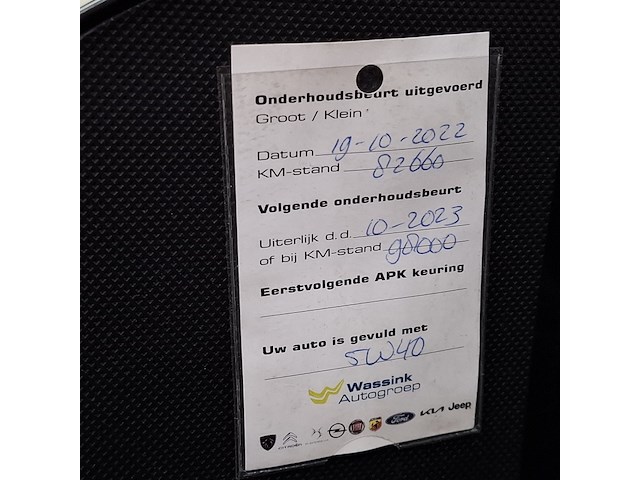 Onderhoudsbeurt uitgevoerd
Groot / Klein
Datum 19-10-2022
KM-stand 82660
Volgende onderhoudsbeurt
Uiterlijk d.d. 10-2023
of bij KM-stand 98000
Eerstvolgende APK keuring
Uw auto is gevuld met
5W40
Wassink
Autogroep
CITROËN FIAT Ford KIA Jeep